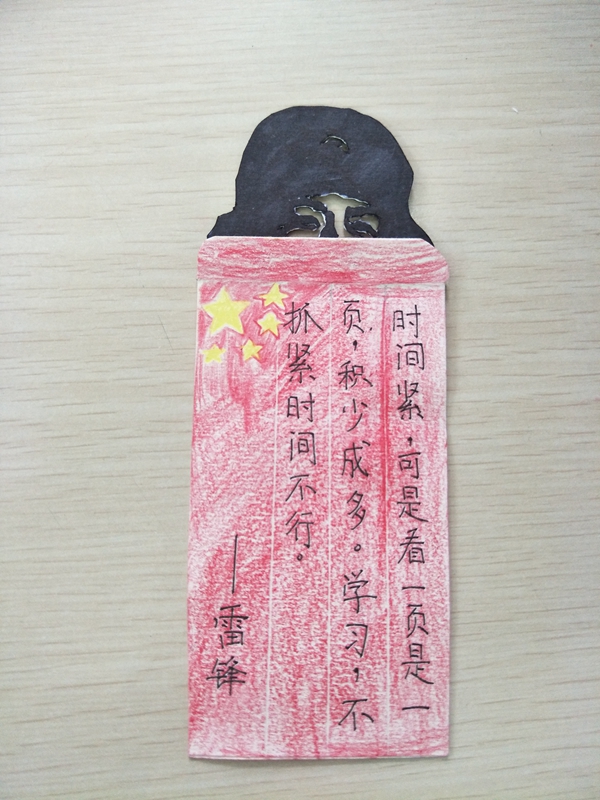 时间紧，可是看一页是一
页，积少成多。学习，不
抓紧时间不行。
——雷锋